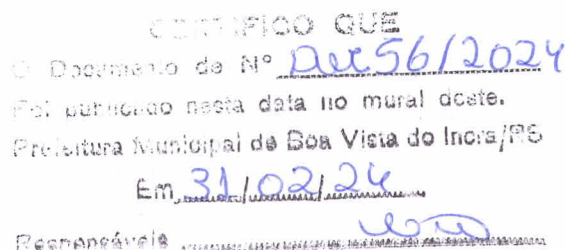 CERTIFICO QUE
O Documento de Nº Dec 56/2024
Foi publicado nesta data no mural deste.
Prefeitura Municipal de Boa Vista do Incra/RS
Em, 31/02/24
Responsáveis